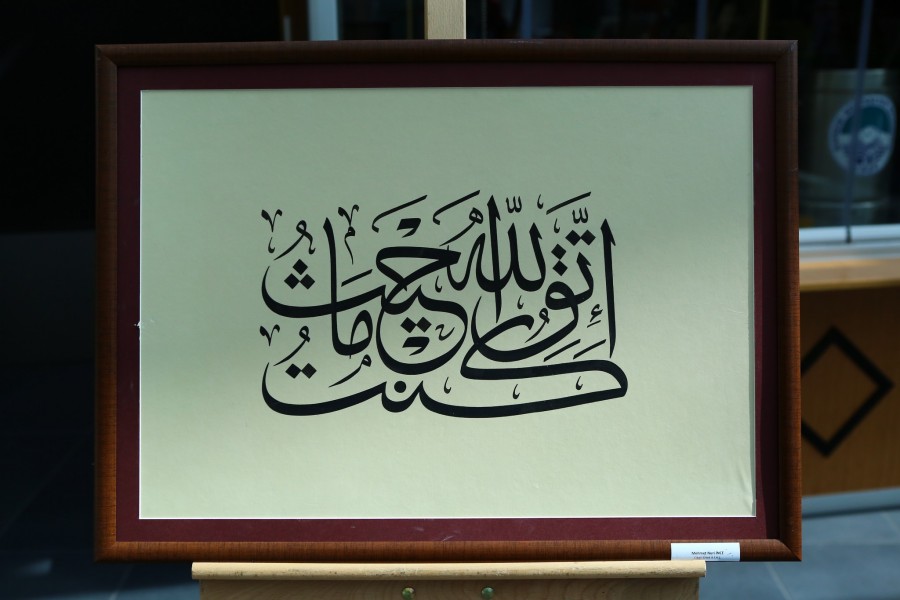 إِتَّقِ اللّٰهَ حَيْثُ مَا كُنْتَ
Mehmet Nuri İNCE